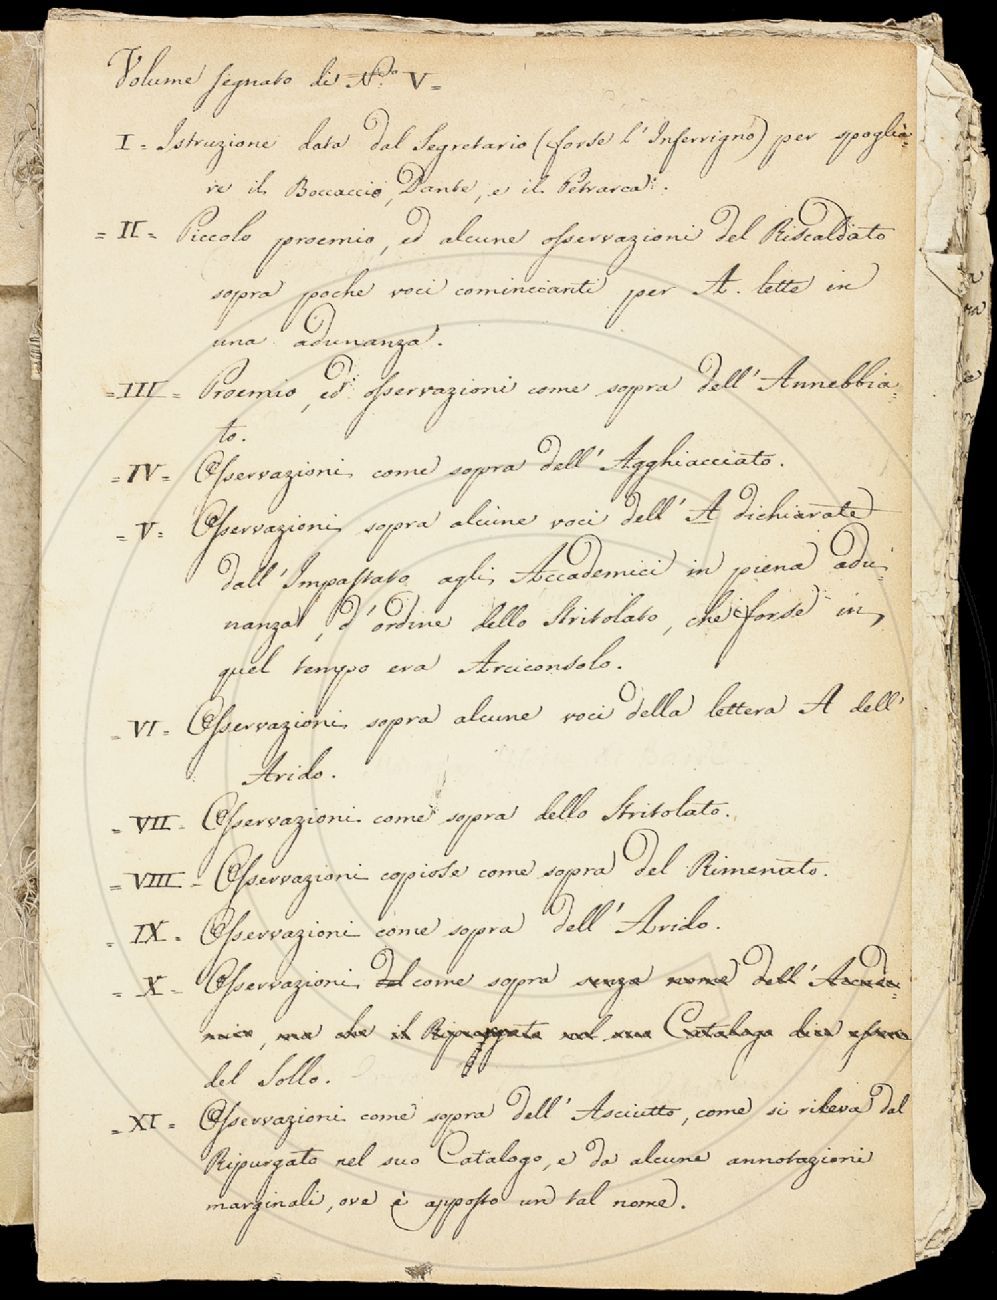 Volume segnato di N.ro V=
I = Istruzione data dal Segretario (forse l'Inferrigno) per spoglia=
re il Boccaccio, Dante, e il Petrarca.
= II = Piccolo proemio, ed alcune osservazioni del Riscaldato
sopra poche voci comincianti per A. lette in
una adunanza.
= III = Proemio, ed osservazioni come sopra dell'Annebbia=
to.
= IV = Osservazioni come sopra dell'Agghiacciato.
= V = Osservazioni sopra alcune voci dell'A dichiarate
dall'Impastato agli Accademici in piena adu=
nanza, d'ordine dello Stritolato, che forse in
quel tempo era Arciconsolo.
= VI = Osservazioni sopra alcune voci della lettera A dell'
Arido.
= VII = Osservazioni come sopra dello Stritolato.
= VIII = Osservazioni copiose come sopra del Rimenato.
= IX = Osservazioni come sopra dell'Arido.
= X = Osservazioni del come sopra senza nome dell'Accade=
mico, ma che il Ripurgato nel suo Catalogo dice essere
del Sollo.
= XI = Osservazioni come sopra dell'Asciutto, come si rileva dal
Ripurgato nel suo Catalogo, e da alcune annotazioni
marginali, ove è apposto un tal nome.